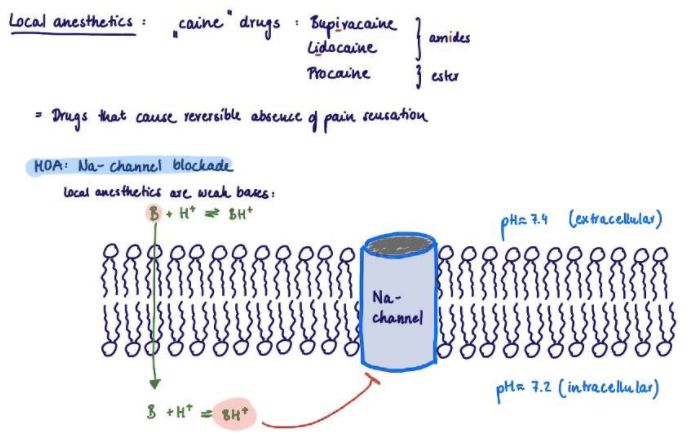 Local anesthetics : „caine" drugs : Bupivacaine
Lidocaine
amides
Procaine
ester
= Drugs that cause reversible absence of pain sensation
MOA: Na-channel blockade
Local anesthetics are weak bases:
B + H⁺ ⇌ BH⁺
pH≈7.4 (extracellular)
Na-
channel
pH≈7.2 (intracellular)
B + H⁺ = BH⁺